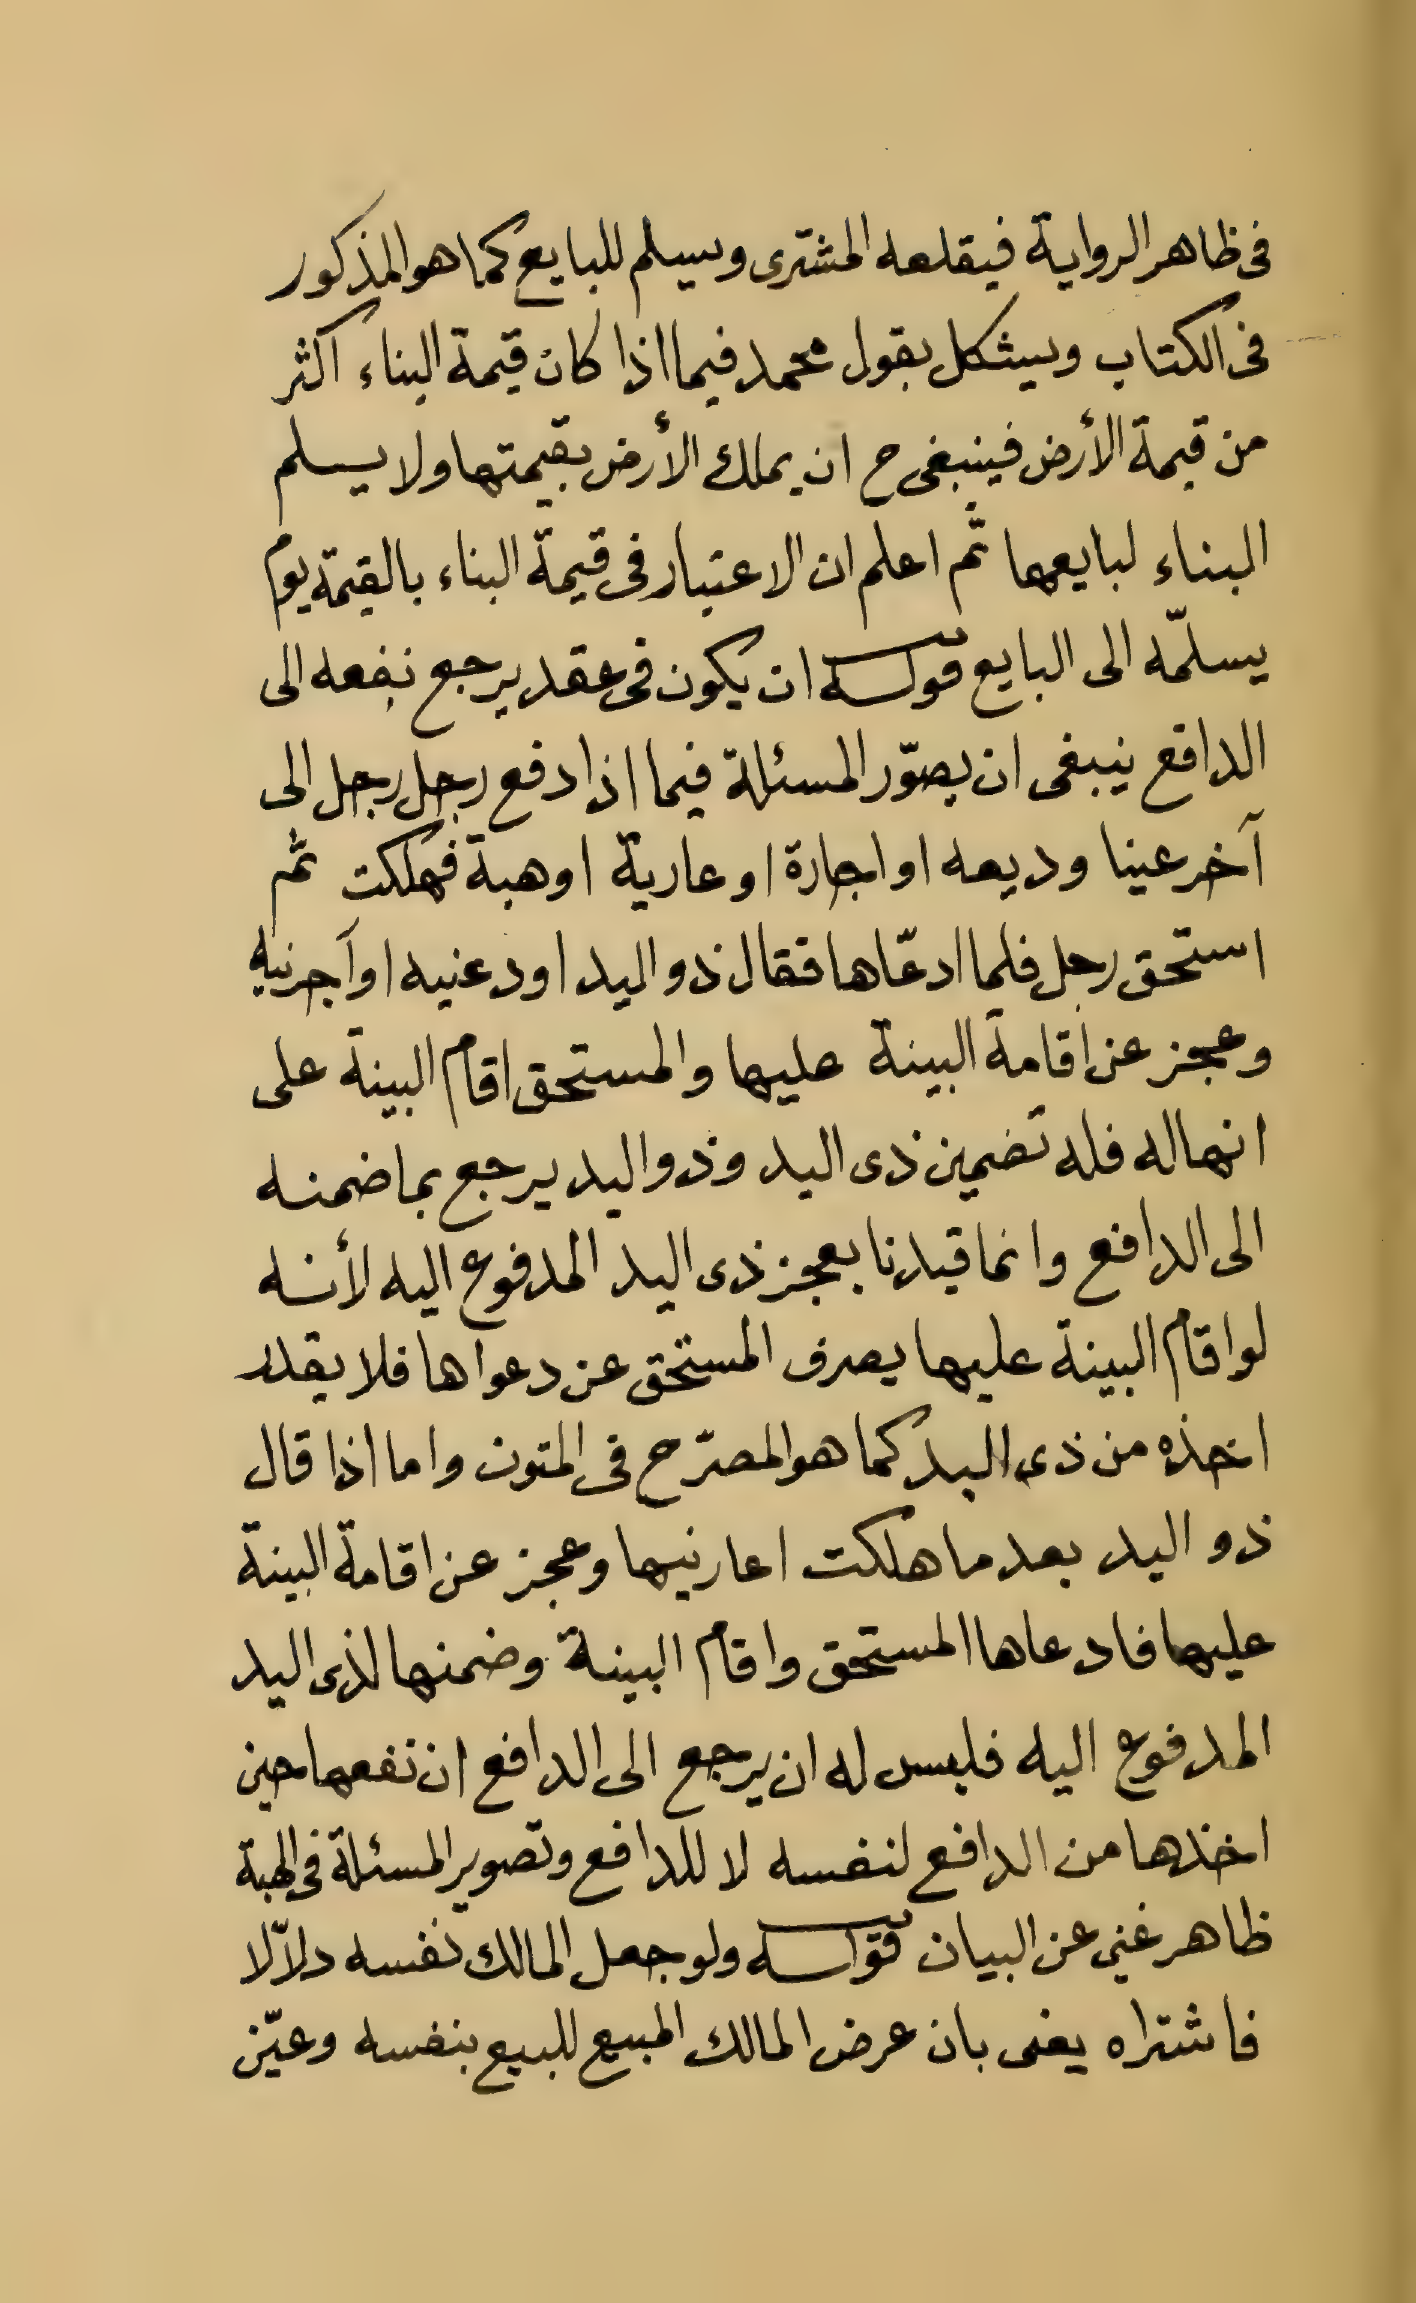 فى ظاهر الرواية فيقلعه المشترى ويسلم للبايع كما هو المذكور
فى الكتاب ويشكل بقول محمد فيما اذا كان قيمة البناء اكثر
من قيمة الأرض فينبغى ح ان يملك الأرض بقيمتها ولا يسلم
البناء لبايعها ثم اعلم ان الاعتبار فى قيمة البناء بالقيمة يوم
يسلمّه الى البايع قوله ان يكون فى عقد يرجع نفعه الى
الدافع ينبغى ان يصوّر المسئلة فيما اذا دفع رجل رجل الى
آخر عينا وديعه او اجارة او عارية او هبة فهلكت ثم
استحق رجل فلما ادعّاها فقال ذو اليد اودعنيه او آجرنيه
وعجز عن اقامة البينة عليها والمستحق اقام البينة على
انها له فله تضمين ذى اليد وذو اليد يرجع بما ضمنه
الى الدافع وانما قيدنا بعجز ذى اليد المدفوع اليه لأنه
لو اقام البينة عليها يصرف المستحق عن دعواها فلا يقدر
اخذه من ذى اليد كما هو المصرّح فى المتون واما اذا قال
ذو اليد بعد ما هلكت اعارنيها وعجز عن اقامة البينة
عليها فادعاها المستحق واقام البينة وضمنها لذى اليد
المدفوع اليه فليس له ان يرجع الى الدافع ان نفعها حين
اخذها من الدافع لنفسه لا للدافع وتصوير المسئلة فى الهبة
ظاهر غنى عن البيان قوله ولو جعل المالك نفسه دلاّلا
فاشتراه يعنى بان عرض المالك المبيع للبيع بنفسه وعيّن